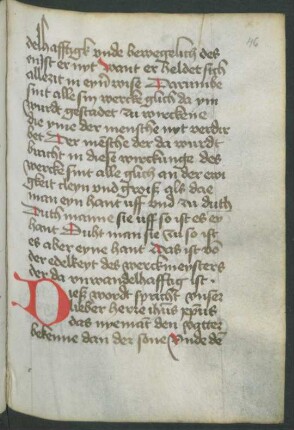 146
delhafftigk vnde bewegelich des
nist er nyt want er heldet sich
allezit in eyn͂ wise Darumbe
sint alle sin wercke glich da ym
wurdt gestadet zu wirckene
die yme der mensche nyt verdir
bet Der mesche der da wurdt
bracht in diese wirckunge des
wercke sint alle glich an der ewi
gkeit cleyn vnd groiß als die
man eyn hant uff vnd zu duth
Duth manne sie uff so ist es ey
hant Duht man sie zu so ist
es aber eyne hant Das ist vo͂
der edelkeyt des werckmeysters
der da vnwandelhafftig ist ·
Dieß wordt spricht vnser
lieber herre ihus xpus
das nieman͂t den vatter
bekenne dan der sone Vnde de͂